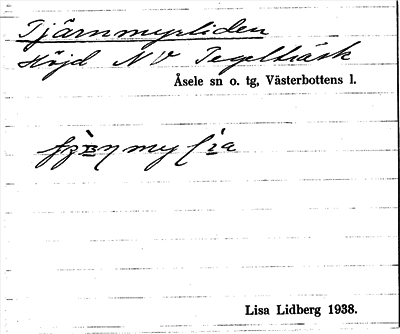 Tjärnmyrliden
Höjd NV Tegelträsk
Åsele sn o. tg, Västerbottens l.
Lisa Lidberg 1938.